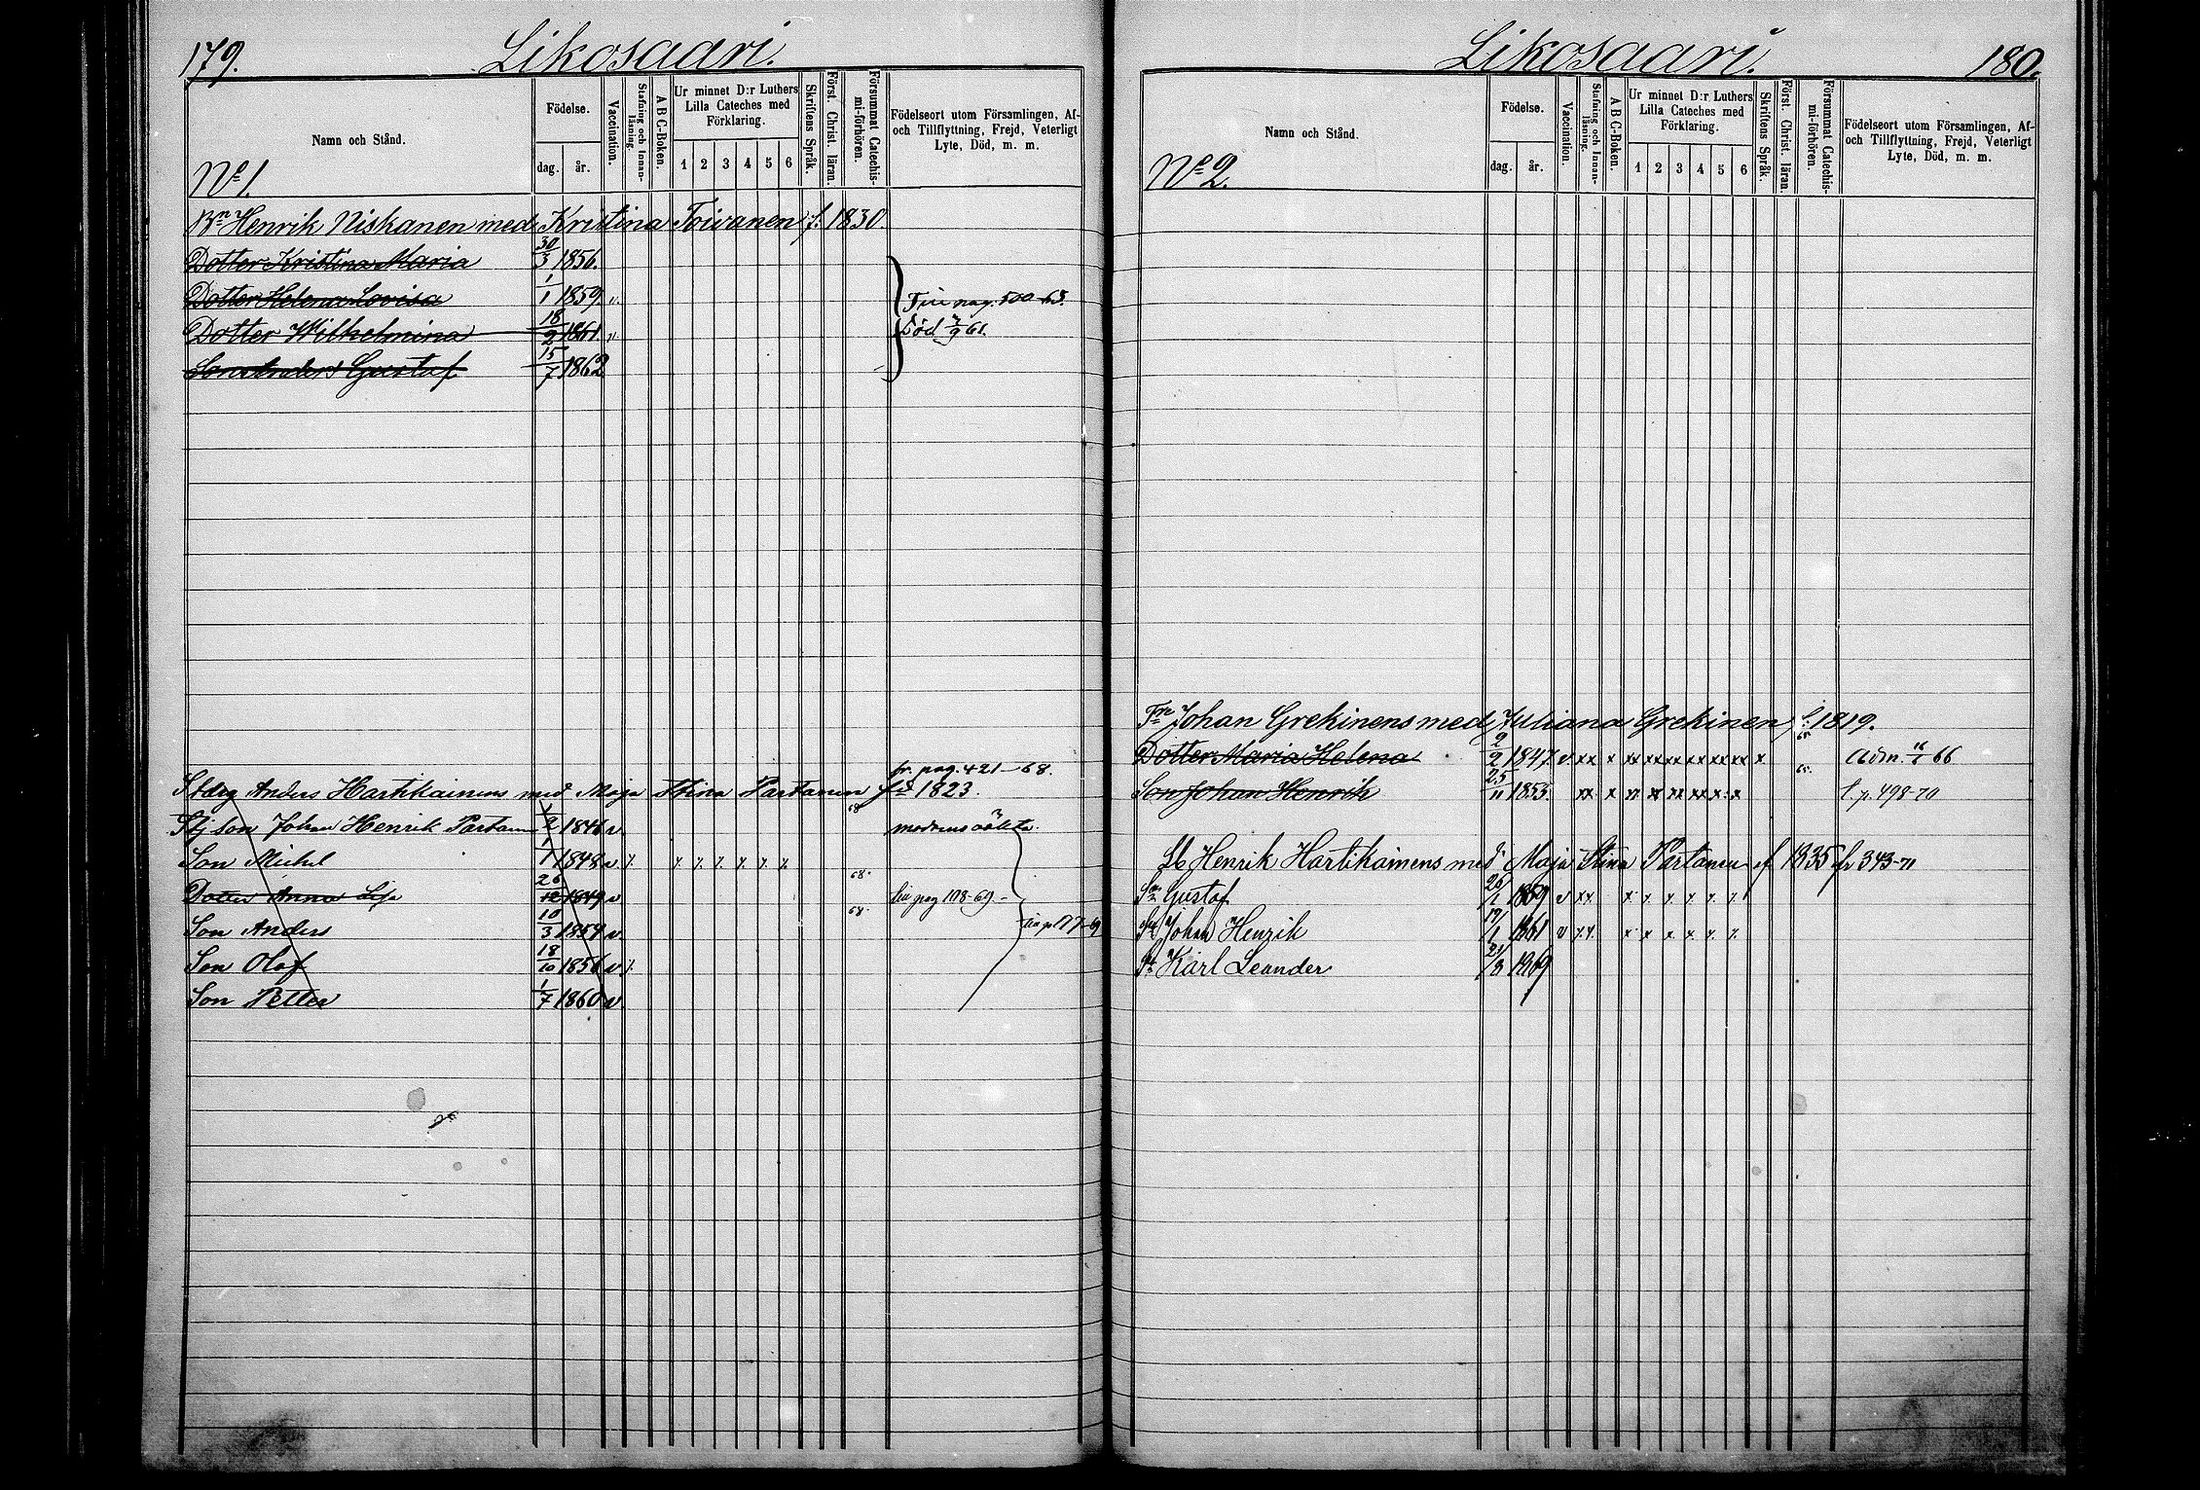 179.
Likosaari.
Namn och Stånd.
Födelse.
dag.
år.
Vaccination.
Stafning och Innan-läsning.
A B C-Boken.
Ur minnet D:r Luthers Lilla Cateches med Förklaring.
1 2 3 4 5 6
Skriftens Språk.
Först. Christ. läran.
Försummat Catechis-mi-förhören.
Födelseort utom Församlingen, Af- och Tillflyttning, Frejd, Veterligt Lyte, Död, m. m.
No 1.
Bn Henrik Niskanen med Kristina Toivanen f. 1830.
Dotter Kristina Maria 30/3 1856.
Dotter Helena Lovisa 1/1 1859 v. 500-65.
Dotter Wilhelmina 18/2 1861 v. Död 61.
Son Anders Gustaf 15/7 1862
fr. pag. 421-68.
Anders Hartikainens med Maja Stina Partanen fd 1823.
Stj son Johan Henrik Partanen 1846 v. 68 modrens oäkta.
Son Michel 1/1 1848 v. x x x x x x x
Dotter Anna Lisa 26/12 1849 v 68. pag 108-69-
Son Anders 10/3 1854 v. 68. 177-69
Son Olof 18/10 1856 v. x
Son Petter 1/7 1860 v.
Likosaari.
180.
Namn och Stånd.
Födelse.
dag.
år.
Vaccination.
Stafning och Innan-läsning.
A B C-Boken.
Ur minnet D:r Luthers Lilla Cateches med Förklaring.
1 2 3 4 5 6
Skriftens Språk.
Först. Christ. läran.
Försummat Catechis-mi-förhören.
Födelseort utom Församlingen, Af- och Tillflyttning, Frejd, Veterligt Lyte, Död, m. m.
No 2.
Johan Grekinens med Juliana Grekinen f. 1819.
Dotter Maria Helena 2/2 1847. v xx x xx xx xx xx xx xx x 65 Adm. 66
Son Johan Henrik 25/11 1853. xx x xx xx xx xx x x 65. t. p. 498-70
Henrik Hartikainens med Maja Stina Partanen f 1835 fr 343-71
Sn Gustaf 1859 v xx x x x x x x
Sn Johan Henrik 19/1 1861 v xx x x x x x x
Sn Karl Leander 1869